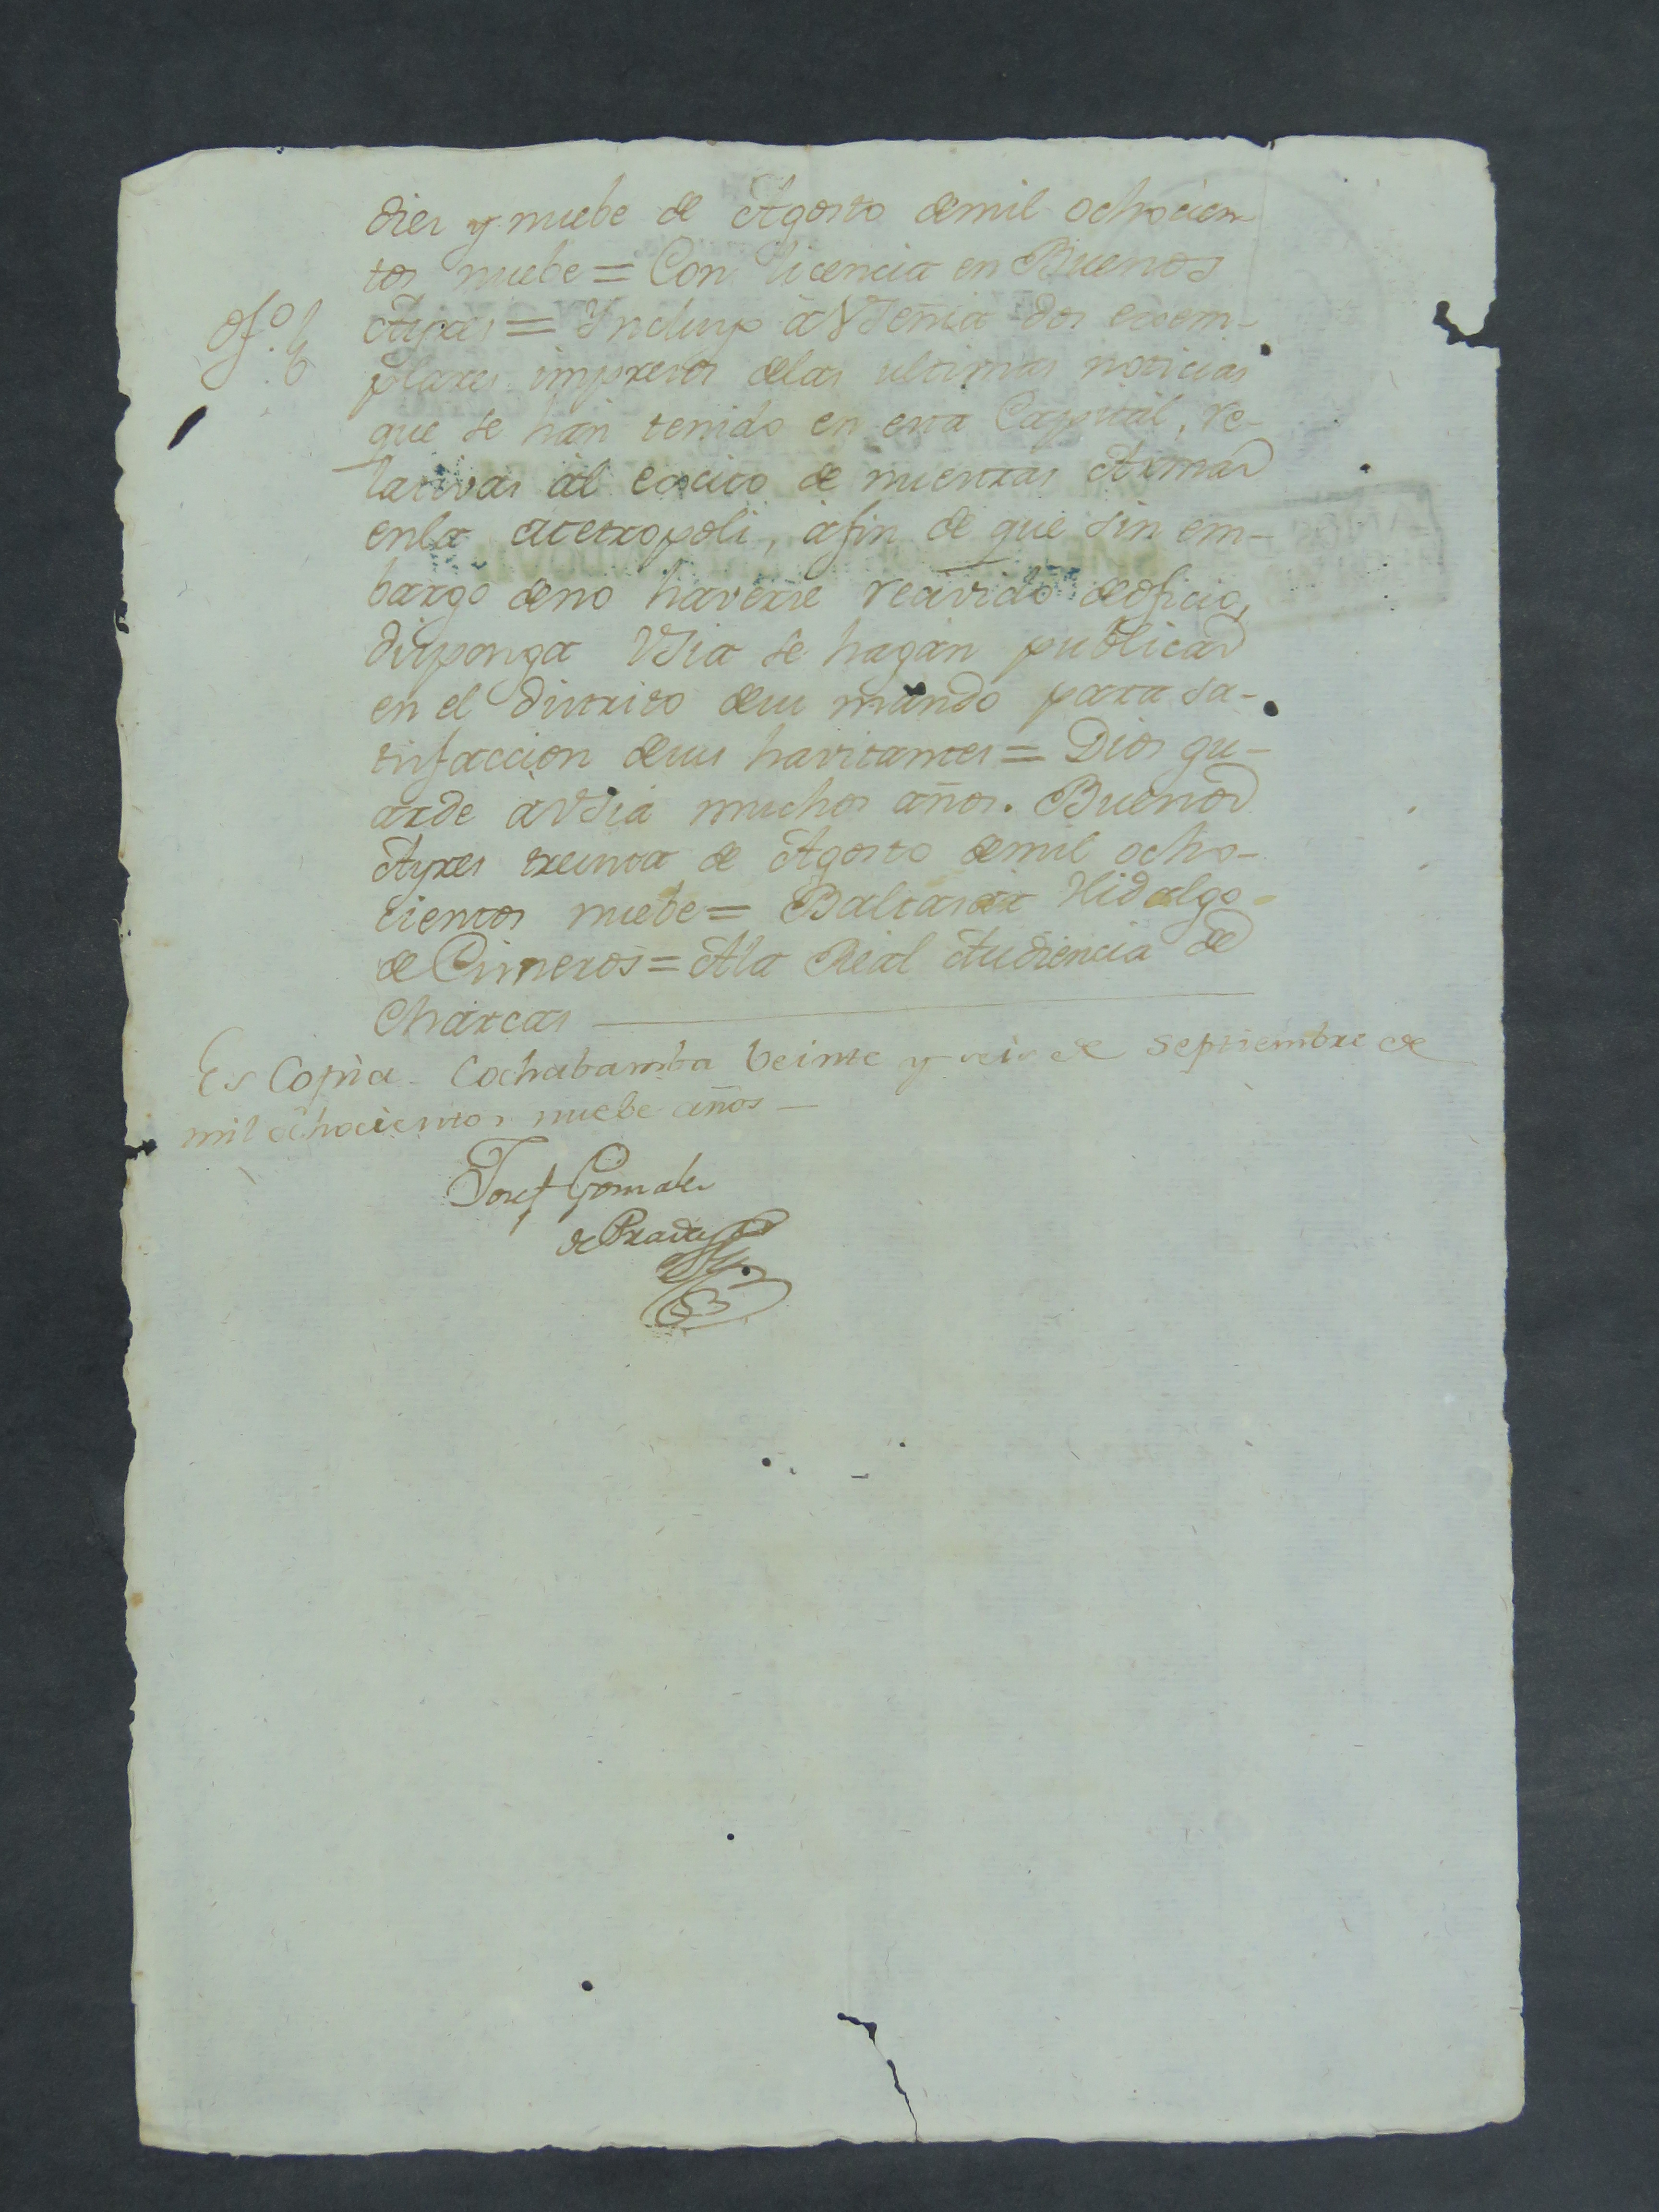 diez y nuebe de Agosto demil ochocien-
tos nuebe = Con licencia en Buenos
Ayres = Incluyo à VSenia dos exem-
plares impresos delas ultimas noticias
que se hán tenido en esta Capital, re-
lativas al exsito de nuestras Armas
enla Metropoli, àfin de que sin em-
bargo deno haverse recivido deoficio,
disponga VSia se hagan publicar
en el distrito desu mando para sa-
tisfaccion desus havitantes = Dios gu-
arde a VSia muchos años. Buenos
Ayres treinta de Agosto demil ocho-
cientos nuebe = Baltasar Hidalgo
de Cisneros = Ala Real Audiencia de
Charcas
Es Copia. Cochabamba Veinte y seis de Septiembre de
mil ochocientos nuebe años
Josef Gonzalez
de Prada